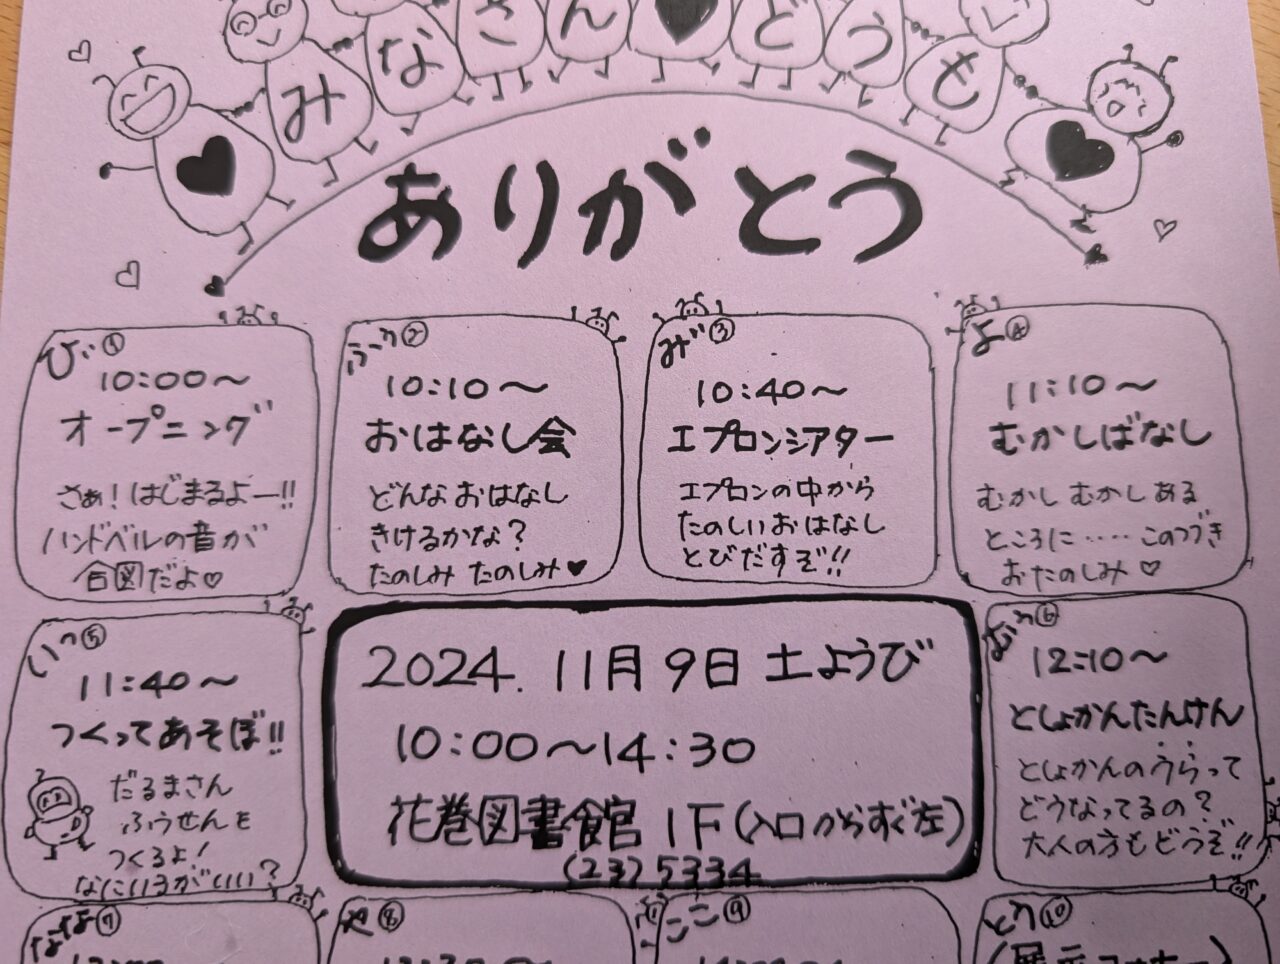 みなさん♥どうも
ありがとう
ひ①
10:00～
オープニング
さぁ!はじまるよー!!
ハンドベルの音が
合図だよ♡
ふ②
10:10～
おはなし会
どんなおはなし
きけるかな?
たのしみ たのしみ♥
み③
10:40～
エプロンシアター
エプロンの中から
たのしいおはなし
とびだすぞ!!
よ④
11:10～
むかしばなし
むかしむかしある
ところに‥‥‥このつづき
おたのしみ♡
いつ⑤
11:40～
つくってあそぼ!!
だるまさん
ふうせんを
つくるよ!
なにいろがいい?
2024.11月9日土ようび
10:00～14:30
花巻図書館1F(入口からすぐ左)
(23)5334
むつ⑥
12:10～
としょかんたんけん
としょかんのうらって
どうなってるの?
大人の方もどうぞ!!
なな⑦
や⑧
ここ⑨
とう⑩